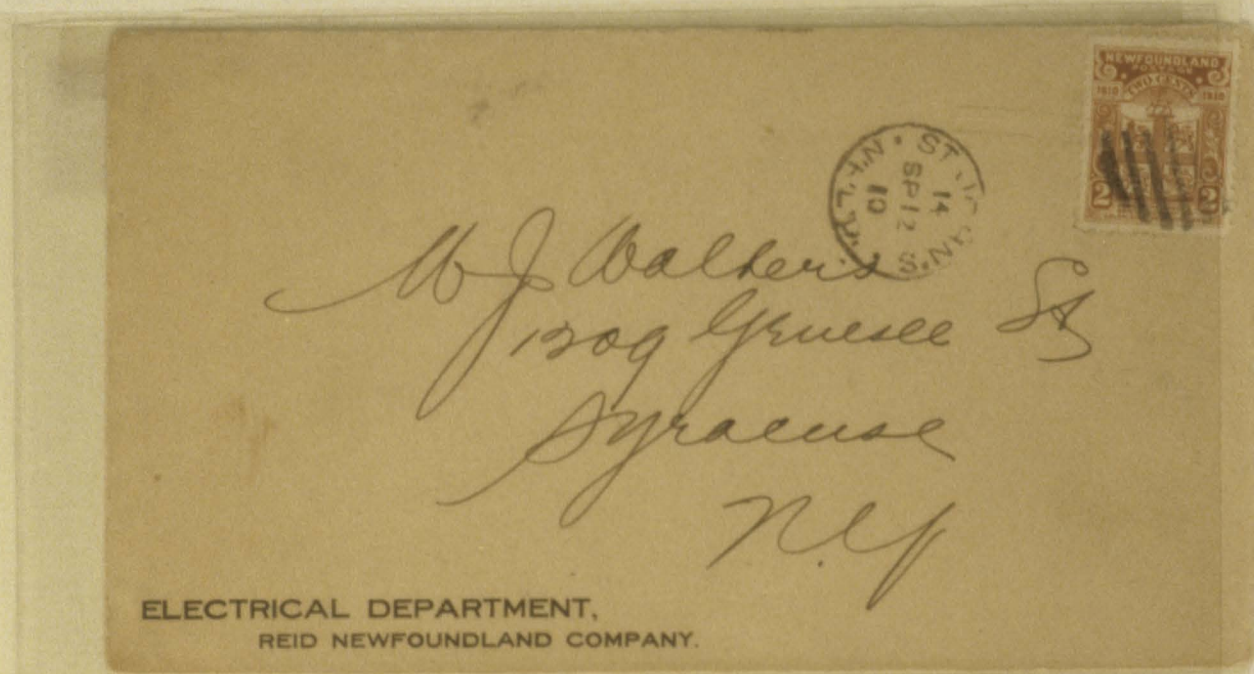 NEWFOUNDLAND
POSTAGE
TWO CENTS
1610 1910
2 2
ST. JOHN'S. N'F'L'D.
14
SP 12
10
W J Walters
1209 Genesee St
Syracuse
N.Y
ELECTRICAL DEPARTMENT,
REID NEWFOUNDLAND COMPANY.